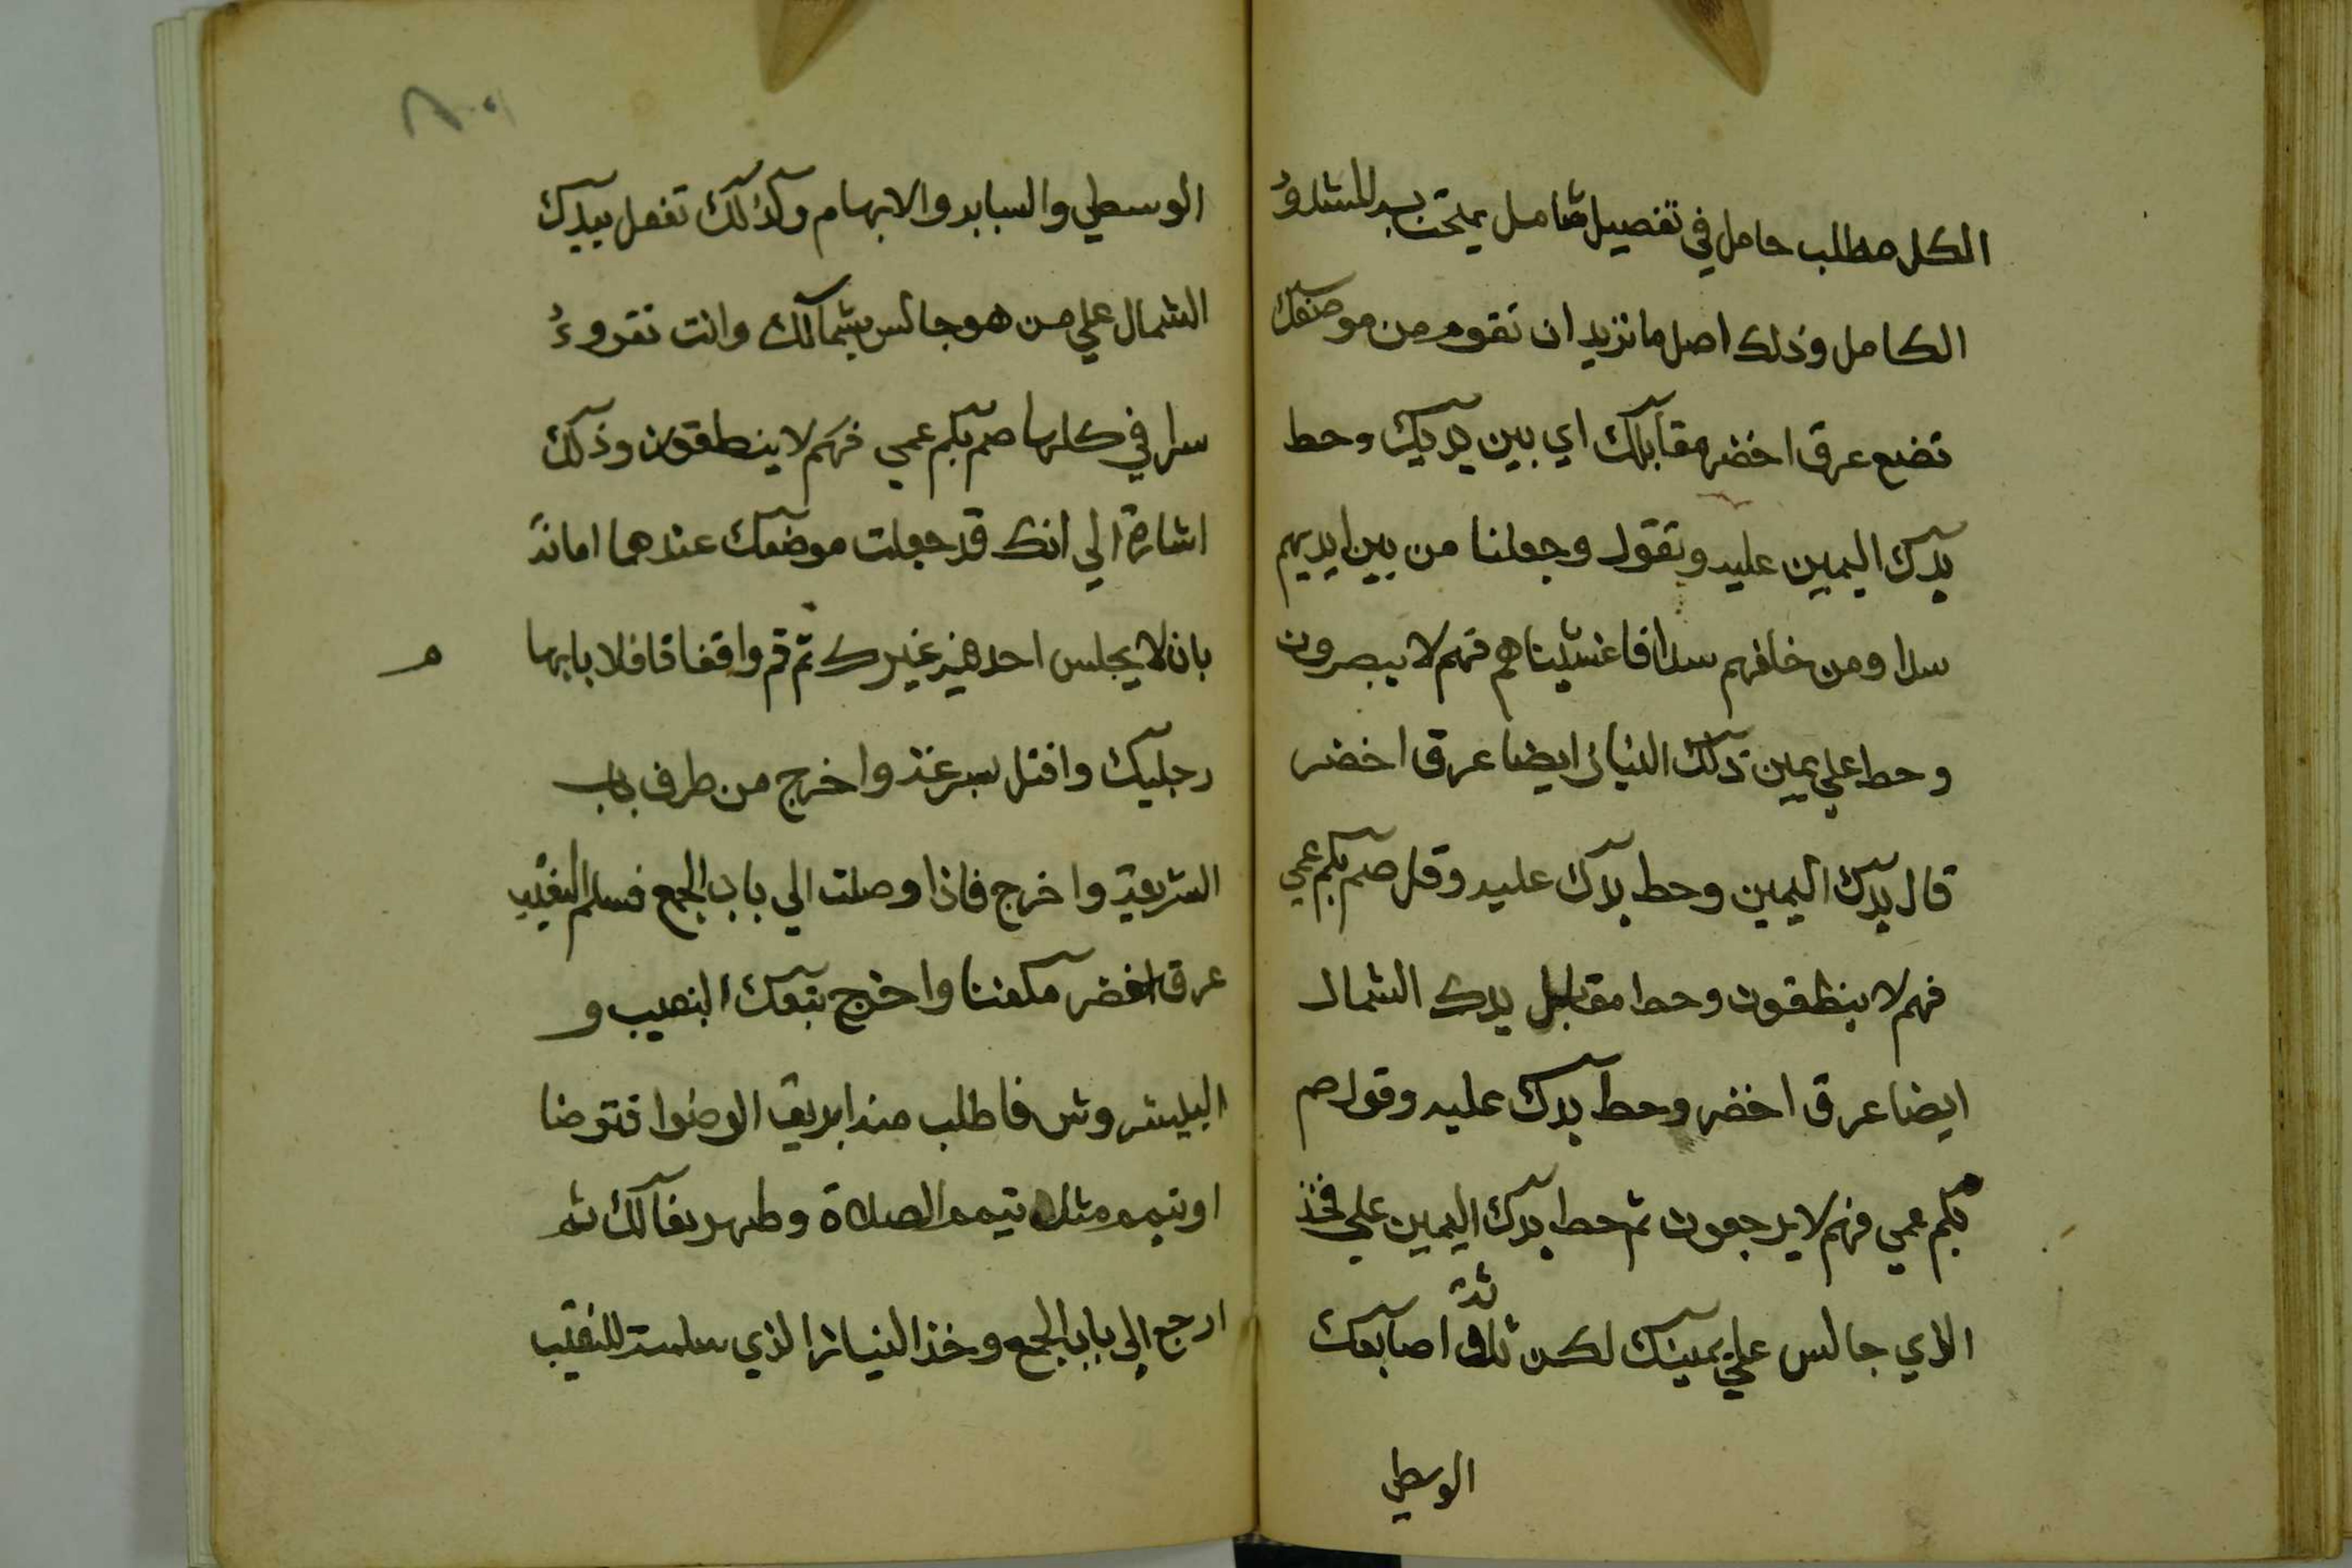 الكل مطلب حامل في تفصيل شامل يمتحن به المشدوُ
الكامل وذلك اصل ما تريد ان تقوم من موضعك
تضع عرق اخضر مقابلك اي بين يديك وحط
يدك اليمين عليه وتقول وجعلنا من بين ايديهم
سدا ومن خلفهم سدا فاغشيناهم فهم لا يبصرون
وحط علي يمين ذلك النياز ايضا عرق اخضر
قال يدك اليمين وحط يدك عليه وقل صم بكم عمي
فهم لا ينطقون وحط مقابل يدك الشمال
ايضا عرق اخضر وحط يدك عليه وقول صم
بكم عمي فهم لا يرجعون ثم حط يدك اليمين علي فخذ
الذي جالس علي يمينك لكن ثلاثة اصابعك
الوسطي
الوسطي والسبابه والابهام وكذلك تفعل بيدك
الشمال علي من هو جالس بشمالك وانت تقروءُ
سرا في كلها صم بكم عمي فهم لا ينطقون وذلك
اشارة الي انك قد جعلت موضعك عندهما امانةً
بان لا يجلس احد فيه غيرك ثم قم واقفا قافلا بابها
م
رجليك وافتل بسرعة واخرج من طرف باب
الشريعة واخرج فاذا وصلت الي باب الجمع فسلم النقيب
عرق اخضر مكفننا واخرج يتبعك النقيب و
البليشروش فاطلب منه ابريق الوضوا فتوضا
او تيمم مثل تيمم الصلاة وطهر نعالك ثم
ارجع الي باب الجمع وخذ النياز الذي سلمته للنقيب